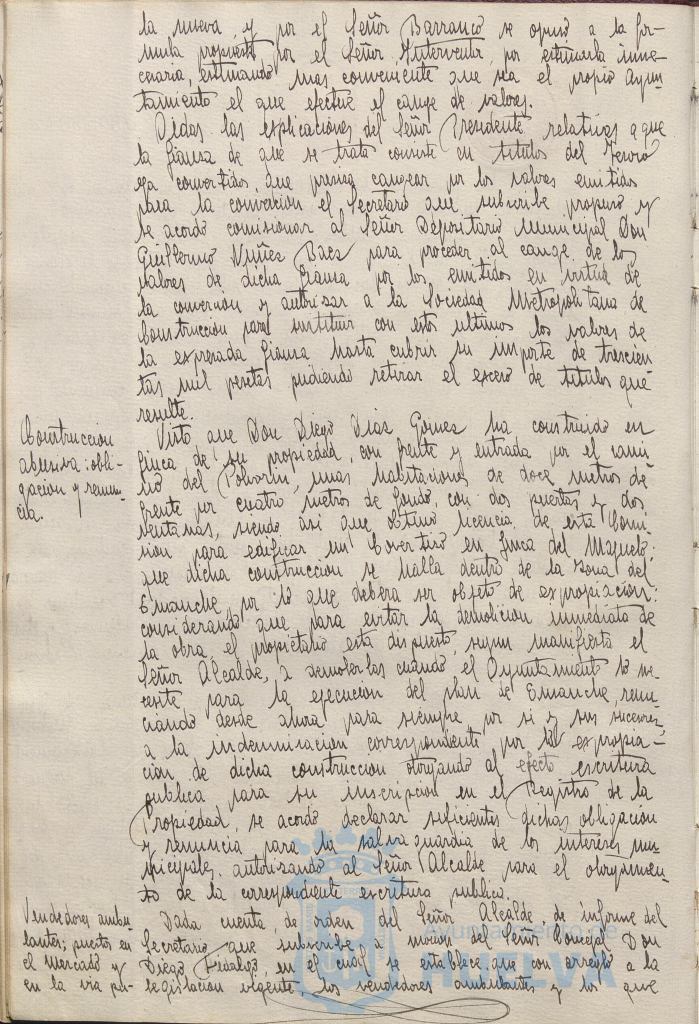 la nueva y por el Señor Barranco se opuso a la for-
mula propuesta por el Señor Interventor, por estimarla inne-
cesaria, estimando mas conveniente que sea el propio Ayun-
tamiento el que efectue el cange de valores.
Oidas las esplicaciones del Señor Presidente relativas a que
la fianza de que se trata consiste en titulos del Tesoro
ya convertidos, que precisa cangear por los valores emitidos
para la conversion el Secretario que subscribe propuso y
se acordo comisionar al Señor Depositario Municipal Don
Guillermo Nuñez Baez para proceder al cange de los
valores de dicha fianza por los emitidos en virtud de
la conversion y autorizar a la Sociedad Metropolitana de
Construccion para sustituir con estos ultimos los valores de
la expresada fianza hasta cubrir su importe de trescien
tas mil pesetas pudiendo retirar el exceso de titulos que
resulte.
Construccion
abusiva: obli-
gacion y renun-
cia.
Visto que Don Diego Dias Gomez ha construido en
finca de su propiedad, con frente y entrada por el cami
no del Polvorin, unas habitaciones de doce metros de
frente por cuatro metros de fondo, con dos puertas y dos
ventanas, siendo asi que obtuvo licencia de esta Comi
sion para edificar un Covertizo en finca del Majuelo;
que dicha construccion se halla dentro de la zona del
Ensanche, por lo que debera ser objeto de expropiacion;
considerando que para evitar la demolicion inmediata de
la obra, el propietario esta dispuesto, segun manifiesta el
Señor Alcalde, a demolerlas cuando el Ayuntamiento lo ne
cesite para la ejecucion del plan de Ensanche, renun
ciando desde ahora para siempre, por si y sus sucesores
a la indemnizacion correspondiente por la expropia-
cion de dicha construccion otorgando al efecto escritura
publica para su inscripcion en el Registro de la
Propiedad, se acordo declarar suficientes dichas obligacion
y renuncia para la salvaguardia de los intereses mu
nicipales, autorizando al Señor Alcalde para el otorgamien-
to de la correspondiente escritura publica.
Vendedores ambu
lantes; puestos en
el Mercado y
en la via pu-
Dada cuenta, de orden del Señor Alcalde, de informe del
Secretario que subscribe, a mocion del Señor Concejal Don
Diego Fidalgo, en el cual se establece que con arreglo a la
legislacion vigente, los vendedores ambulantes y los que
Ayuntamiento de
HUELVA